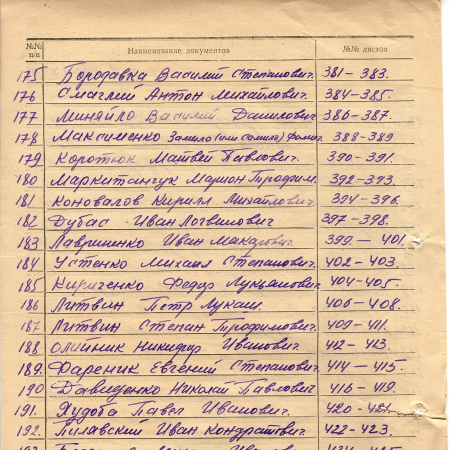 №№ п/п Наименование документов №№ листов
175 Бородавка Василий Степанович. 381–383.
176 Смаглий Антон Михайлович. 384–385.
177 Миняйло Василий Данилович 386–387.
178 Максименко (или) 388–389
179 Коротюк Матвей Павлович. 390–391.
180 Маркитанчук Марион Трофим. 392–393.
181 Коновалов Кирилл Михайлович. 394–396.
182 Дубас Иван Логвинович 397–398.
183 Лавриненко Иван Макарович. 399.–401.
184 Устенко Михаил Степанович. 402–403.
185 Кириченко Федор Лукьянович. 404–405.
186 Литвин Петр Лукаш. 406–408.
187 Литвин Степан Трофимович. 409–411.
188 Олийник Никифор Иванович. 412–413.
189. Фареник Евгений Степанович. 414–415.
190 Давиденко Николай Павлович 416–419.
191. Худоба Павел Иванович. 420–421.
192. Пилавский Иван Кондратович. 422–423.